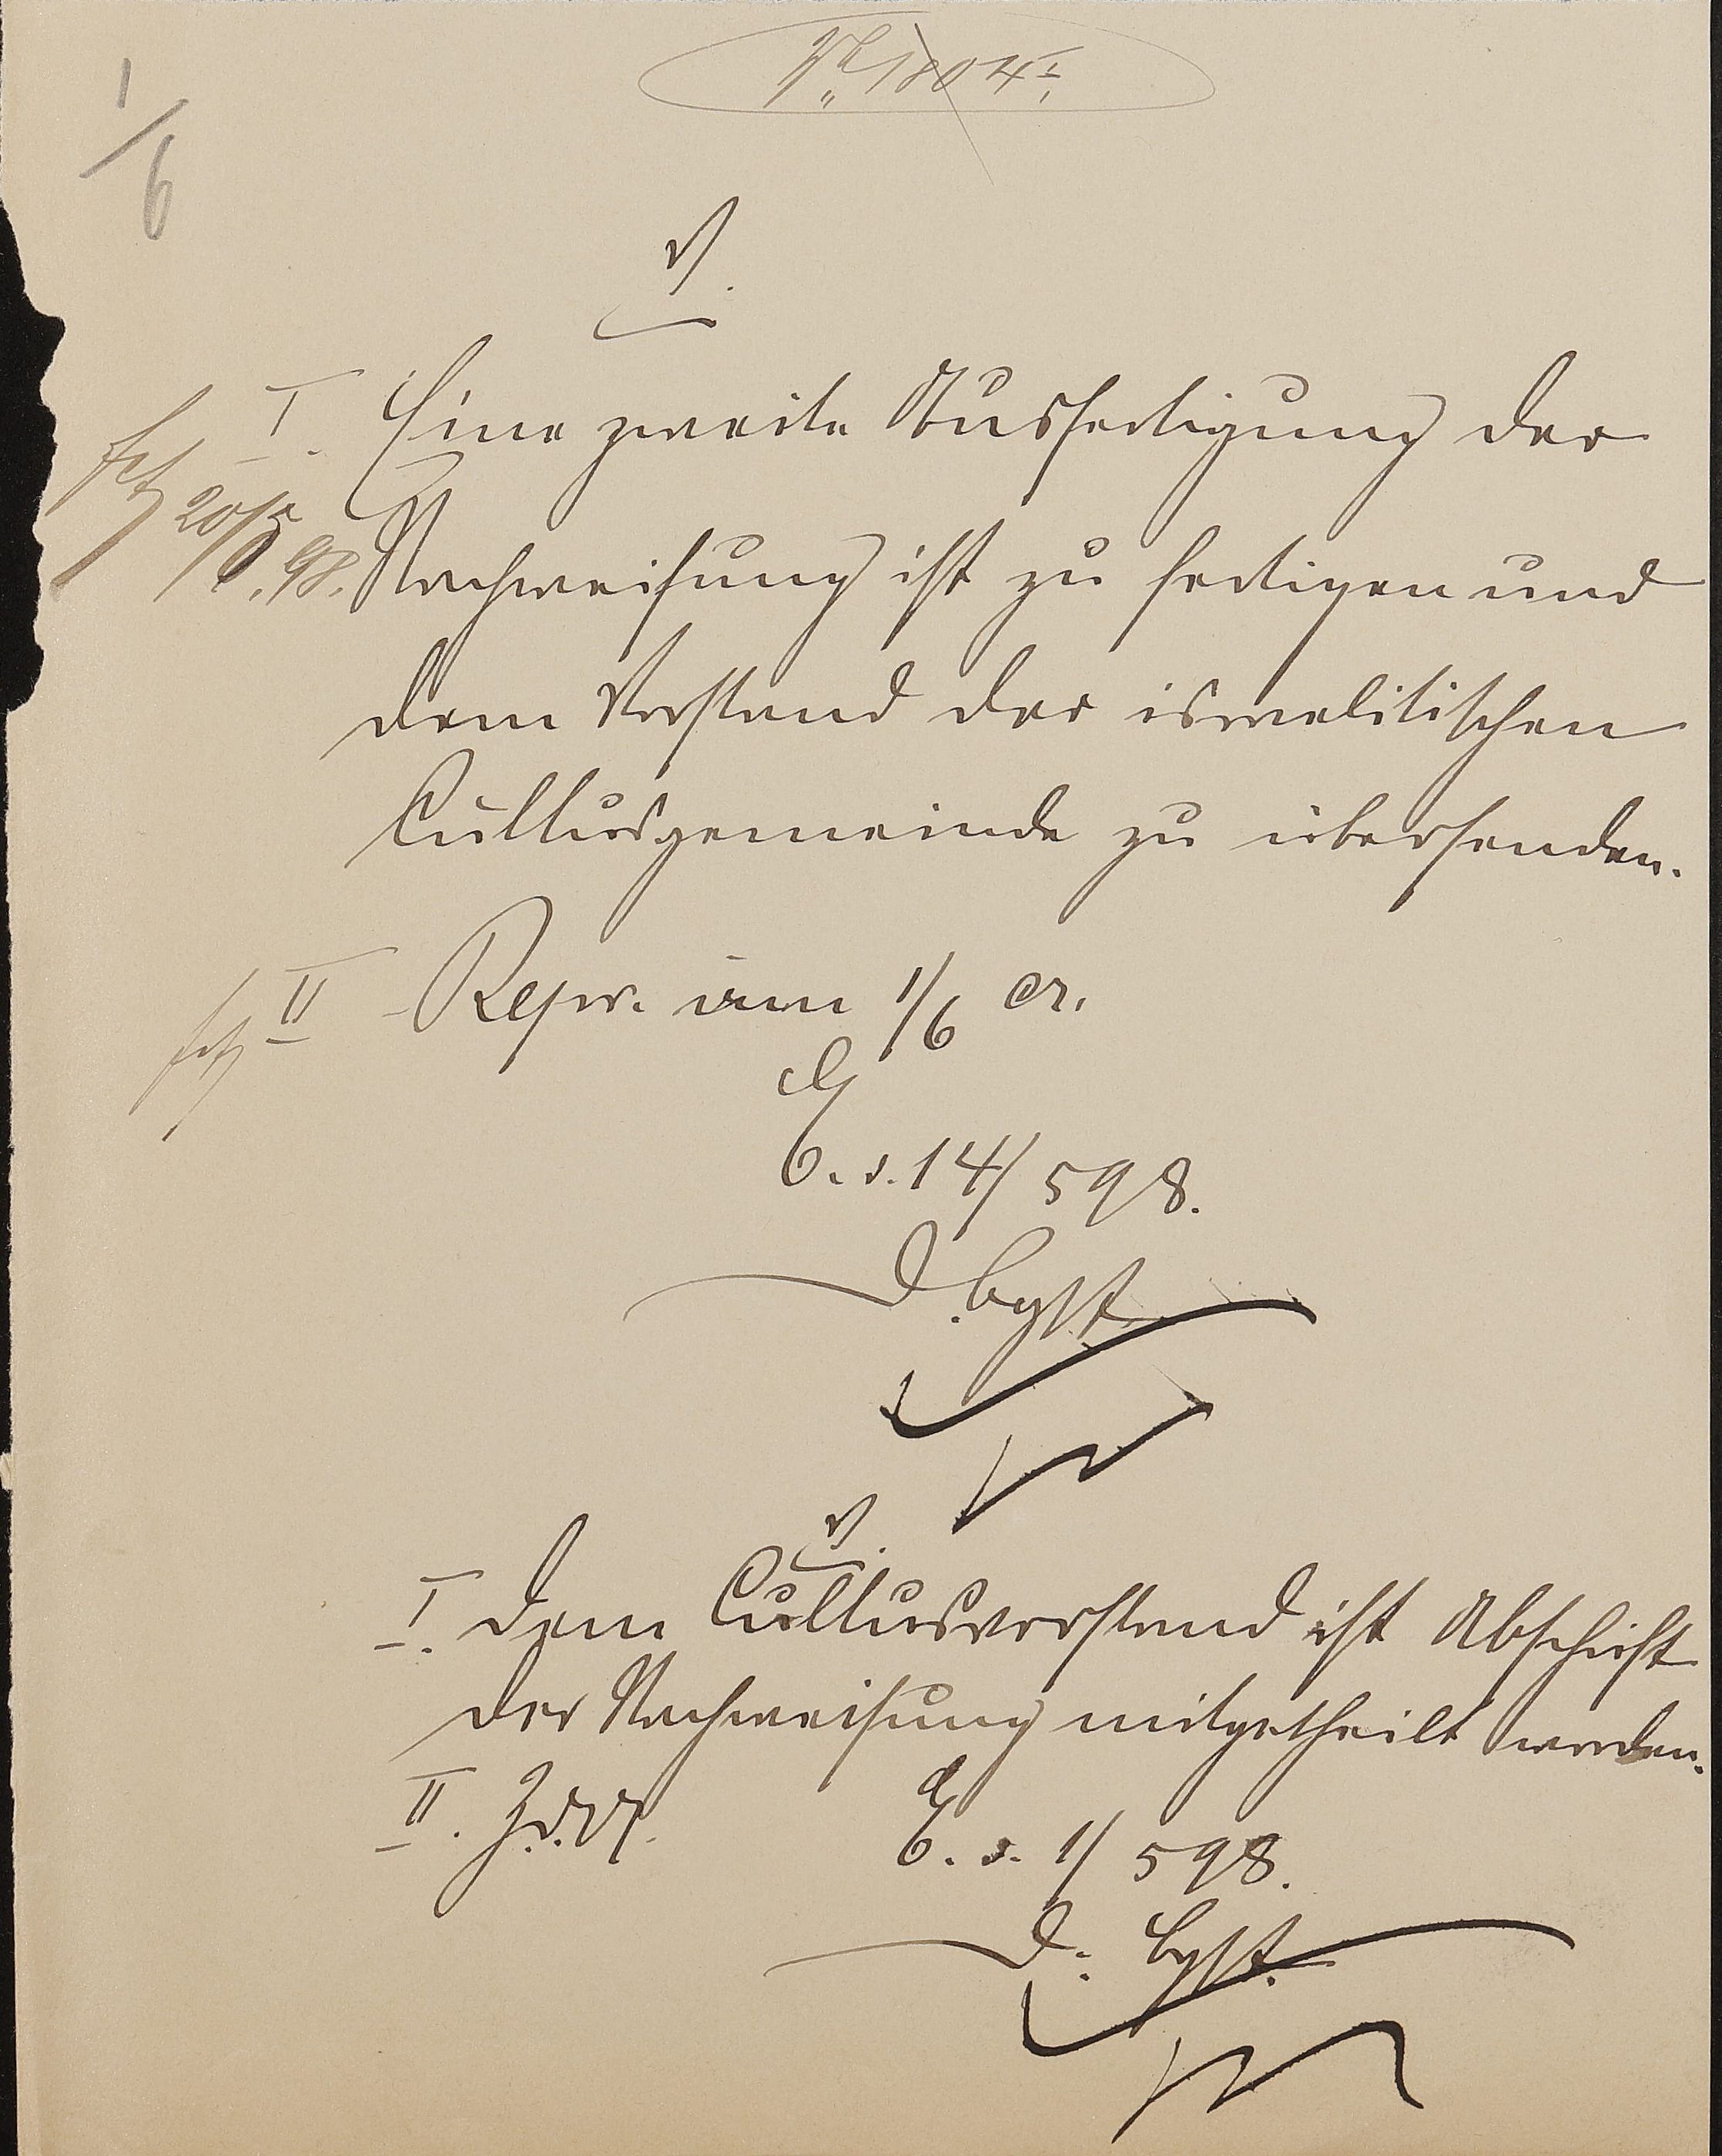 1/6
V.
I. Eine zweite Ausfertigung der
20/5. 98.
Nachweisung ist zu fertigen und
dem Vorstand der israelitischen
Cultusgemeinde zu übersenden.
II Repr. am 1/6 cr.
E. d. 14/5 98.
D. Bgst.
V.
I. Dem Cultusvorstand ist Abschrift
der Nachweisung mitgetheilt worden.
II. Z. d. A.
E. d. 1/5 98.
D. Bgst.